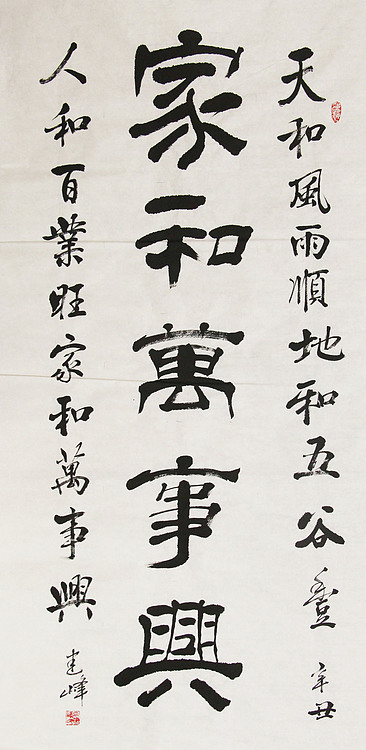 天和風雨順地和五谷豐
辛丑
家和萬事興
人和百業旺家和萬事興
建峰